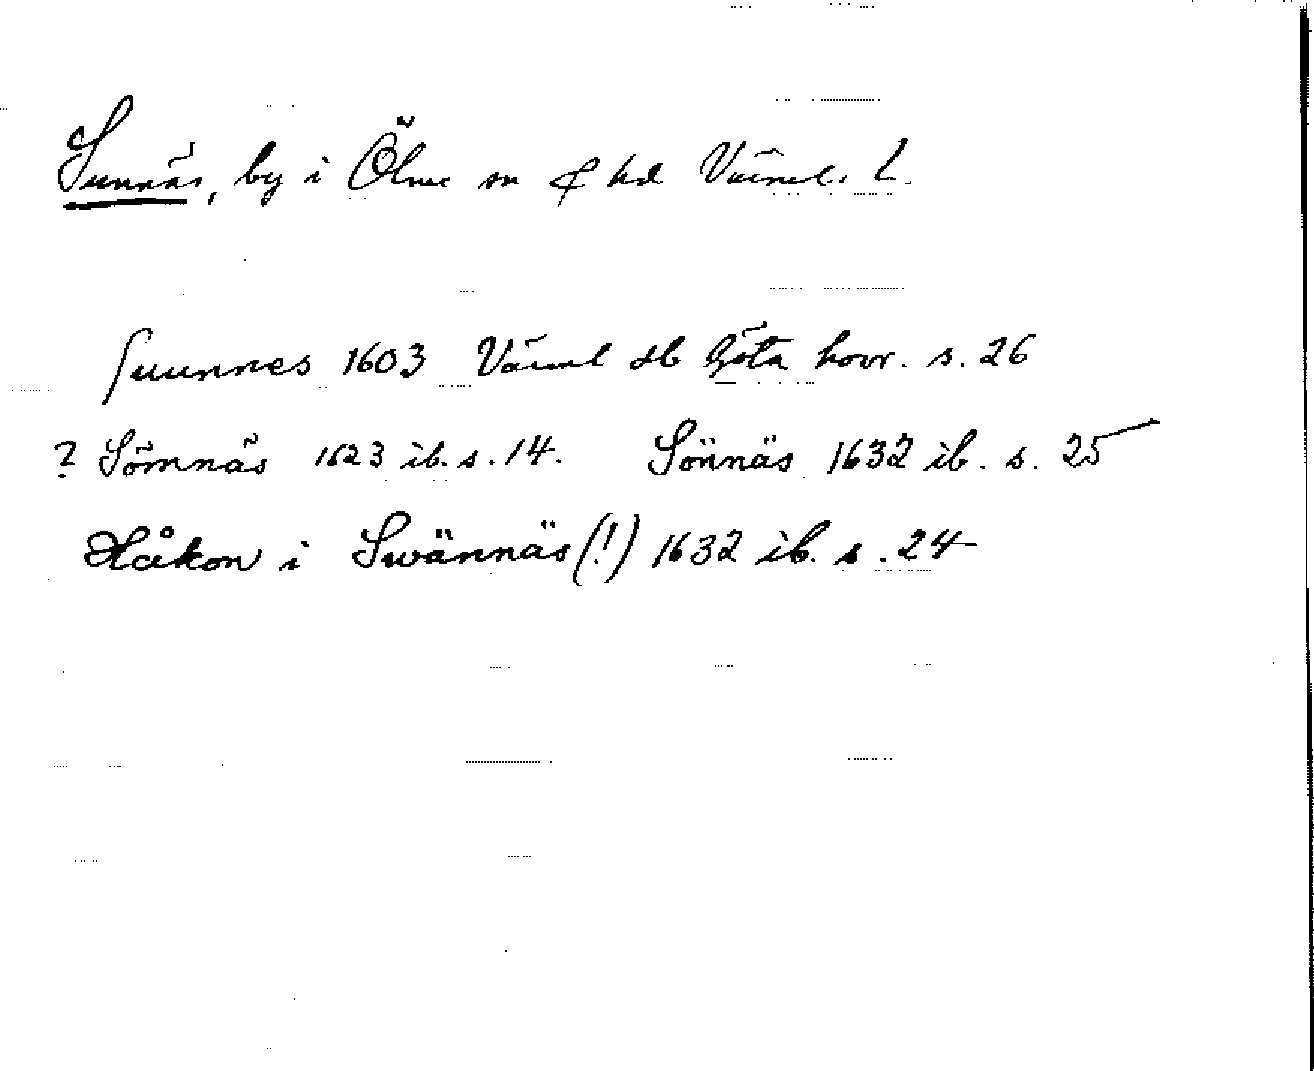 Sunnäs, by i Ölme sn & hd Värml. L.
Suunnes 1603 Värml db Göta hovr. s. 26
? Sömnäs 1623 ib. s. 14. Sönnäs 1632 ib. s. 25
Håkon i Swännäs (!) 1632 ib. s. 24